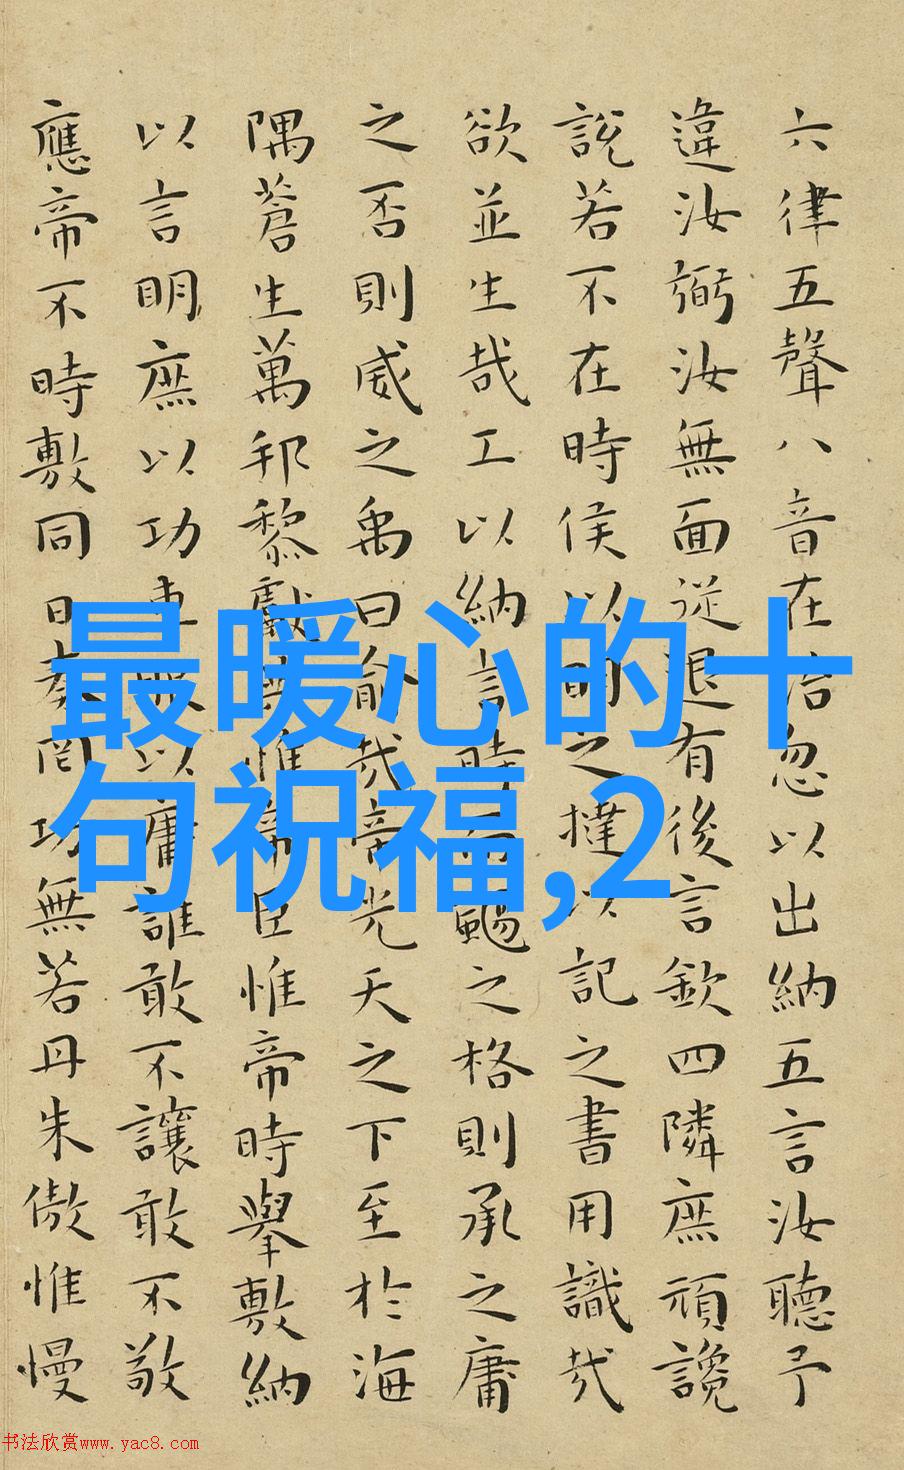 六律五聲八音在治忽以出納五言汝聽予
違汝弼汝無面從退有後言欽四隣庶頑讒
說若不在時侯以明之撻以記之書用識哉
欲並生哉工以納言時而颺之格則承之庸
之否則威之禹曰俞哉帝光天之下至於海
隅蒼生萬邦黎獻共惟帝臣惟帝時舉敷納
以言明庶以功車服以庸誰敢不讓敢不敬
應帝不時敷同日奏罔功無若丹朱傲惟慢
最暖心的十
句祝福,2
书法欣赏www.yac8.com